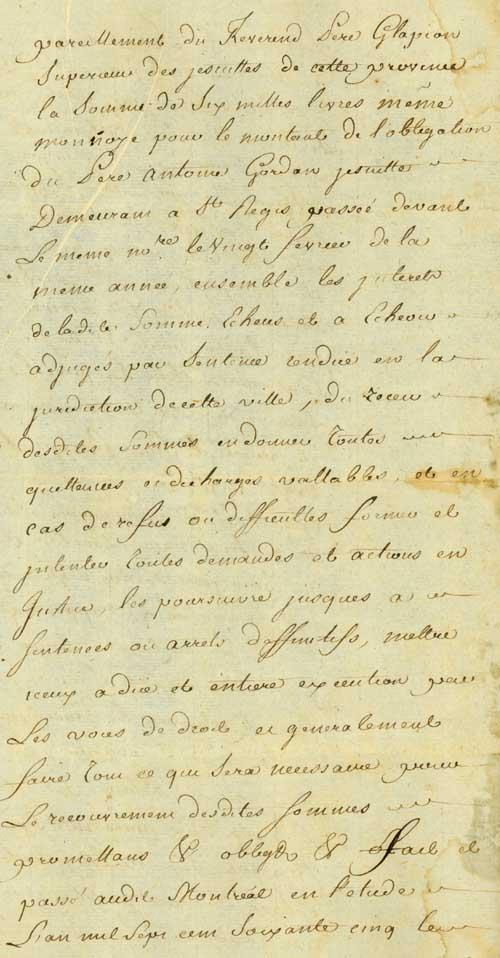 pareillement du Reverend Pere Glapion
Superieur des jesuittes de cette province
la Somme de Six milles livres même
monnoye pour le montant de l'obligation
du Pere Antoine Gordan jesuitte
Demeurant a St Regis, passeé devant
Le meme nre le Vingt fevrier de la
meme année, ensemble les jnterets
de ladite Somme Echeus et a Echeoir
adjugés par Sentence rendue en la
juridiction de cette ville, du receu
desdites Sommes en donner Toutes
quittances et decharges vallables, et en
cas de refus ou difficultés former et
jntenter toutes demandes et actions en
Justice, les poursuivre jusques a
sentences ou arrets deffinitifs, mettre
iceux a due et entiere execution par
Les voies de droit et generalement
faire Tout ce qui Sera necessaire pour
Le recouvrement desdites sommes
promettans & obligt & ffait et
passé audit Montréal en l'etude
L'an mil Sept cent Soixante cinq le